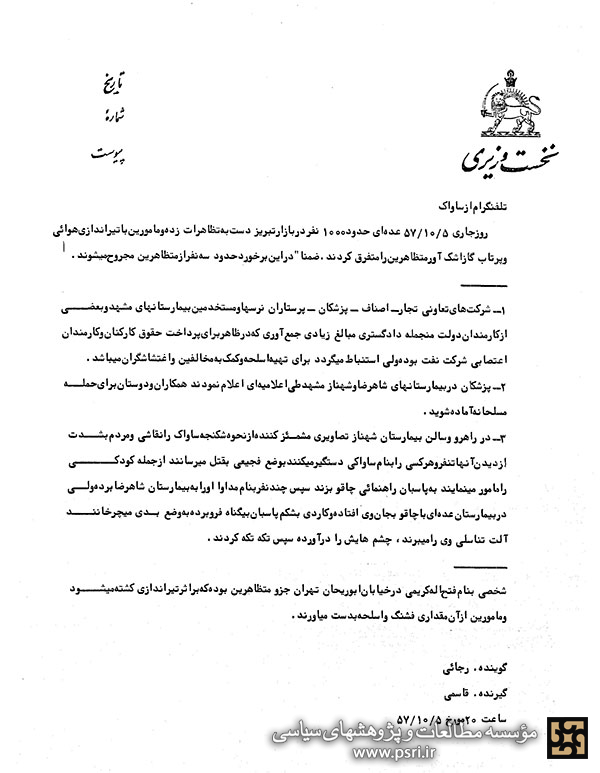 تاریخ
شمارهٔ
پیوست
نخست وزیری
تلفنگرام از ساواک
روز جاری ۵۷/۱۰/۵ عده‌ای حدود ۱۰۰۰ نفر در بازار تبریز دست به تظاهرات زده و مامورین با تیراندازی هوائی
و پرتاب گاز اشک آور متظاهرین را متفرق کردند . ضمنا" در این برخورد حدود سه نفر از متظاهرین مجروح میشوند .
۱ــ شرکت‌های تعاونی تجار ــ اصناف ــ پزشکان ــ پرستاران نرسها و مستخدمین بیمارستانهای مشهد و بعضــی
از کارمندان دولت منجمله دادگستری مبالغ زیادی جمع آوری که در ظاهر برای پرداخت حقوق کارکنان و کارمندان
اعتصابی شرکت نفت بوده ولی استنباط میگردد برای تهیه اسلحه و کمک به مخالفین و اغتشاشگران میباشد .
۲ــ پزشکان در بیمارستانهای شاهرضا و شهناز مشهد طی اعلامیه‌ای اعلام نمودند همکاران و دوستان برای حملــه
مسلحانه آماده شوید .
۳ــ در راهرو و سالن بیمارستان شهناز تصاویری مشمئـز کننده از نحوه شکنجه ساواک را نقاشی و مردم بشدت
از دیدن آنها تنفر و هرکسی را بنام ساواکی دستگیر میکنند بوضع فجیعی بقتل میرسانند از جمله کودکــــی
را مامور مینمایند به پاسبان راهنمائی چاقو بزند سپس چند نفر بنام مداوا او را به بیمارستان شاهرضا برده ولــی
در بیمارستان عده‌ای با چاقو بجان وی افتاده و کاردی بشکم پاسبان بیگناه فرو برده به وضع بدی میچرخاننــــد
آلت تناسلی وی را میبرند ، چشم هایش را درآورده سپس تکه تکه کردند .
شخصی بنام فتح‌اله کریمی در خیابان ابوریحان تهران جزو متظاهرین بوده که بر اثر تیراندازی کشته میشـــود
و مامورین از آن مقداری فشنگ و اسلحه بدست میاورند .
گوینده . رجائی
گیرنده . قاسمی
ساعت ۲۰ مورخ ۵۷/۱۰/۵
مؤسسه مطالعات و پژوهشهای سیاسی
www.psri.ir